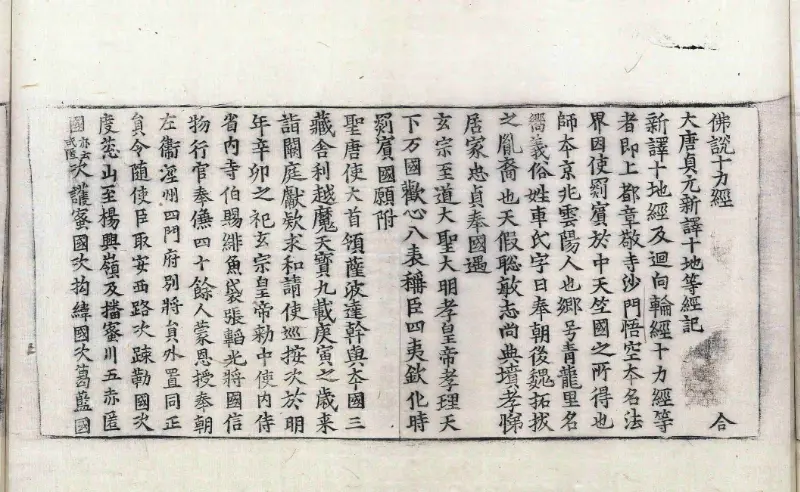 合
佛說十力經
大唐貞元新譯十地等經記
新譯十地經及迴向輪經十力經等
者即上都章敬寺沙門悟空本名法
界因使罽賓於中天竺國之所得也
師本京兆雲陽人也鄉号青龍里名
嚮義俗姓車氏字曰奉朝後魏拓拔
之胤裔也天假聡敏志尚典墳孝悌
居家忠貞奉國遇
玄宗至道大聖大明孝皇帝孝理天
下万國歡心八表稱臣四夷欽化時
罽賓國願附
聖唐使大首領薩波達幹與本國三
藏舍利越魔天寶九載庚寅之歲来
詣闕庭獻欵求和請使巡按次於明
年辛卯之祀玄宗皇帝勑中使内侍
省内寺伯賜緋魚袋張韜光將國信
物行官奉傔四十餘人蒙恩授奉朝
左衞涇州四門府別將貟外置同正
貟令随使臣取安西路次踈勒國次
度葱山至楊興嶺及播蜜川五赤匿
國亦云式匿次護蜜國次拘緯國次葛藍國